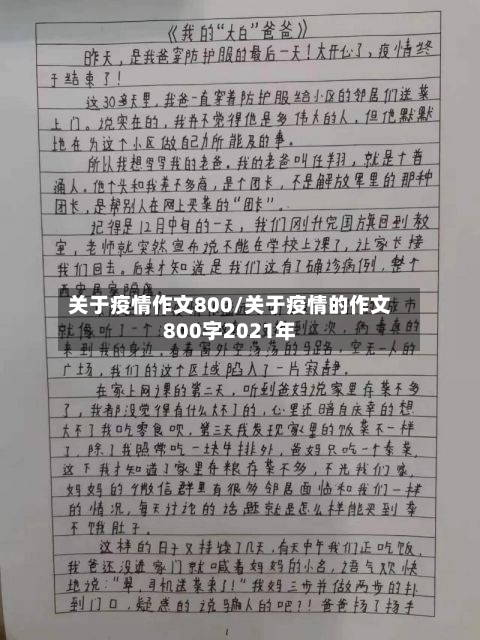 《我的“大白”爸爸》
昨天，是我爸穿防护服的最后一天！太开心了，疫情终
于结束了！
这30多天里，我爸一直穿着防护服给小区的邻居们送菜
上门。说实在的，我并不觉得他是多伟大的人，但他默默
地在为这个小区做自力所能及的事。
所以我想写写我的老爸。我的老爸叫任翔，就是个普
通人。他个头和我差不多高，是个团长，不是解放军里的那种
团长，是帮别人在网上买菜的“团长”。
记得是12月中旬的一天，我们刚升完国旗回到教
室，老师就突然宣布说不能在学校上课了，让家长接
我们回去。后来才知道是我们这有了确诊病例，整个
关于疫情作文800/关于疫情的作文
800字2021年
城市
就像听了一个
到这次，病毒真的
来到我的身边，看着窗外空荡荡的马路，空无一人的
广场，我们的这个区域陷入了一片寂静。
在家上网课的第二天，听到爸妈说家里存菜不多
了，我都没觉得有什么大不了的，心里还暗自庆幸的想
大不了我吃零食呗。第三天我发现家里的饭菜不一样
了，除了我照常吃一块牛排外，爸妈只吃一个素菜，
这下我才知道了家里存粮存菜不多，不光我们家，
妈妈的微信群里有很多邻居面临和我们一样
的情况，每天讨论的话题就是怎么样能买到菜
不饿肚子。
这样的日子又持续了几天，有天中午我们正吃饭，
我爸还没进家门就喊着妈妈的小名，语气欢快
地说：“翠，司机送菜来了！”我妈三步并做两步的扑
到门口，疑惑的说骗人的吧？！爸爸扬了扬手
1